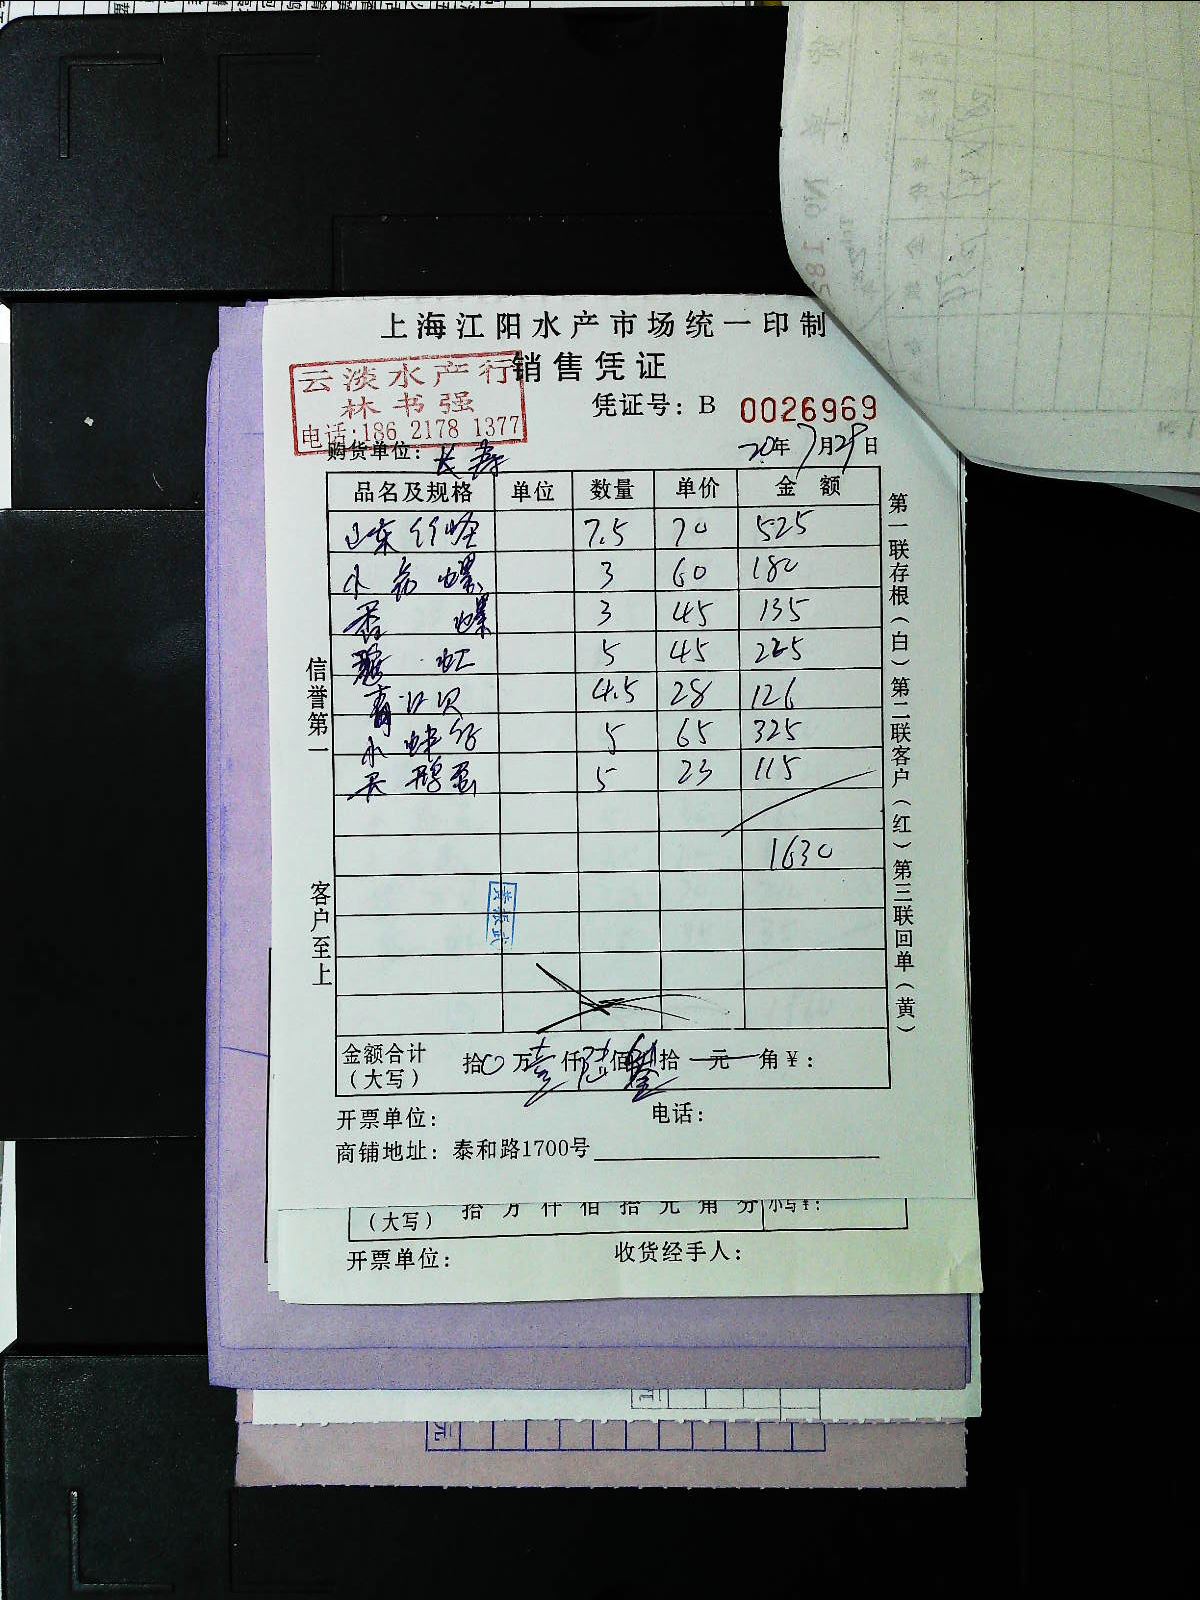 上海江阳水产市场统一印制
销售凭证
云淡水产行
林书强
电话:186 2178 1377
凭证号: B 0026969
购货单位: 长寿
20年7月29日
品名及规格 单位 数量 单价 金额
山东竹蛏 7.5 70 525
小 螺 3 60 180
香螺 3 45 135
虹 5 45 225
青口贝 4.5 28 126
小 仔 5 65 325
5 23 115
1630
金额合计(大写) 拾0万壹仟陆佰叁拾元角¥:
开票单位: 电话:
商铺地址: 泰和路1700号
信誉第一
客户至上
第一联存根(白)第二联客户(红)第三联回单(黄)
(大写) 拾万仟佰拾元角分 小写¥:
开票单位: 收货经手人:
元